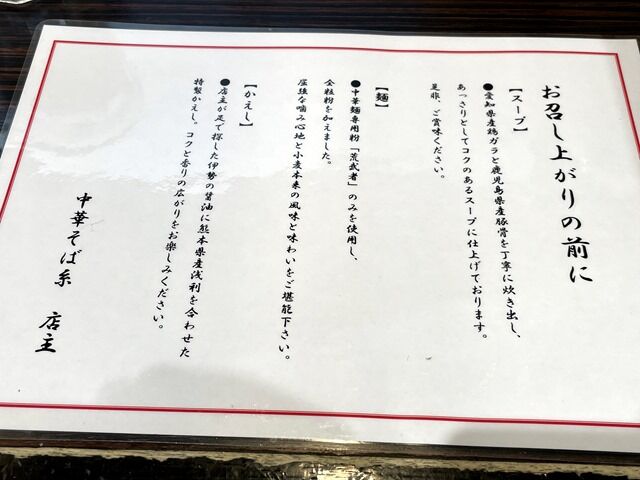 お召し上がりの前に
【スープ】
●愛知県産鶏ガラと鹿児島県産豚骨を丁寧に炊き出し、
あっさりとしてコクのあるスープに仕上げております。
是非、ご賞味ください。
【麺】
●中華麺専用粉「荒武者」のみを使用し、
全粒粉を加えました。
屈強な噛み心地と小麦本来の風味と味わいをご堪能下さい。
【かえし】
●店主が足で探した伊勢の醤油に熊本県産浅利を合わせた
特製かえし。コクと香りの広がりをお楽しみください。
中華そば糸 店主